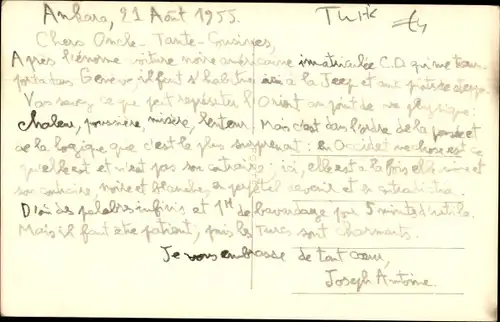 Ankara, 21 Août 1955.
Turk
Chers Oncle - Tante - Cousines,
Après l'énorme voiture noire américaine immatriculée C.D qui me trans-
porta dans Genève, il faut s'habituer à la Jeep et aux pistes de steppe.
Vous savez ce que peut représenter l'Orient au point de vue physique:
chaleur, poussière, misère, lenteur. Mais c'est dans l'ordre de la pensée et
de la logique que c'est le plus surprenant: en Occident une chose est ce
qu'elle est et n'est pas son contraire; ici, elle est à la fois elle-même et
son contraire, noire et blanche, en perpétuel
D'où des palabres infinis et 1H de bavardage pour 5 minutes d'utile.
Mais il faut être patient, puis les Turcs sont charmants.
Je vous embrasse de tout coeur,
Joseph Antoine.